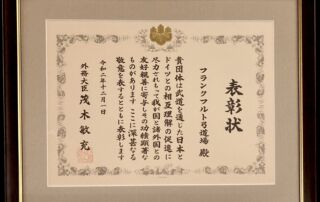 表彰状
フランクフルト弓道場 殿
貴団体は武道を通じた日本と
ドイツとの相互理解の促進に
尽力されもって我が国と諸外国との
友好親善に寄与しその功績顕著な
ものがあります ここに深甚なる
敬意を表するとともに表彰します
令和二年十二月一日
外務大臣 茂木敏充